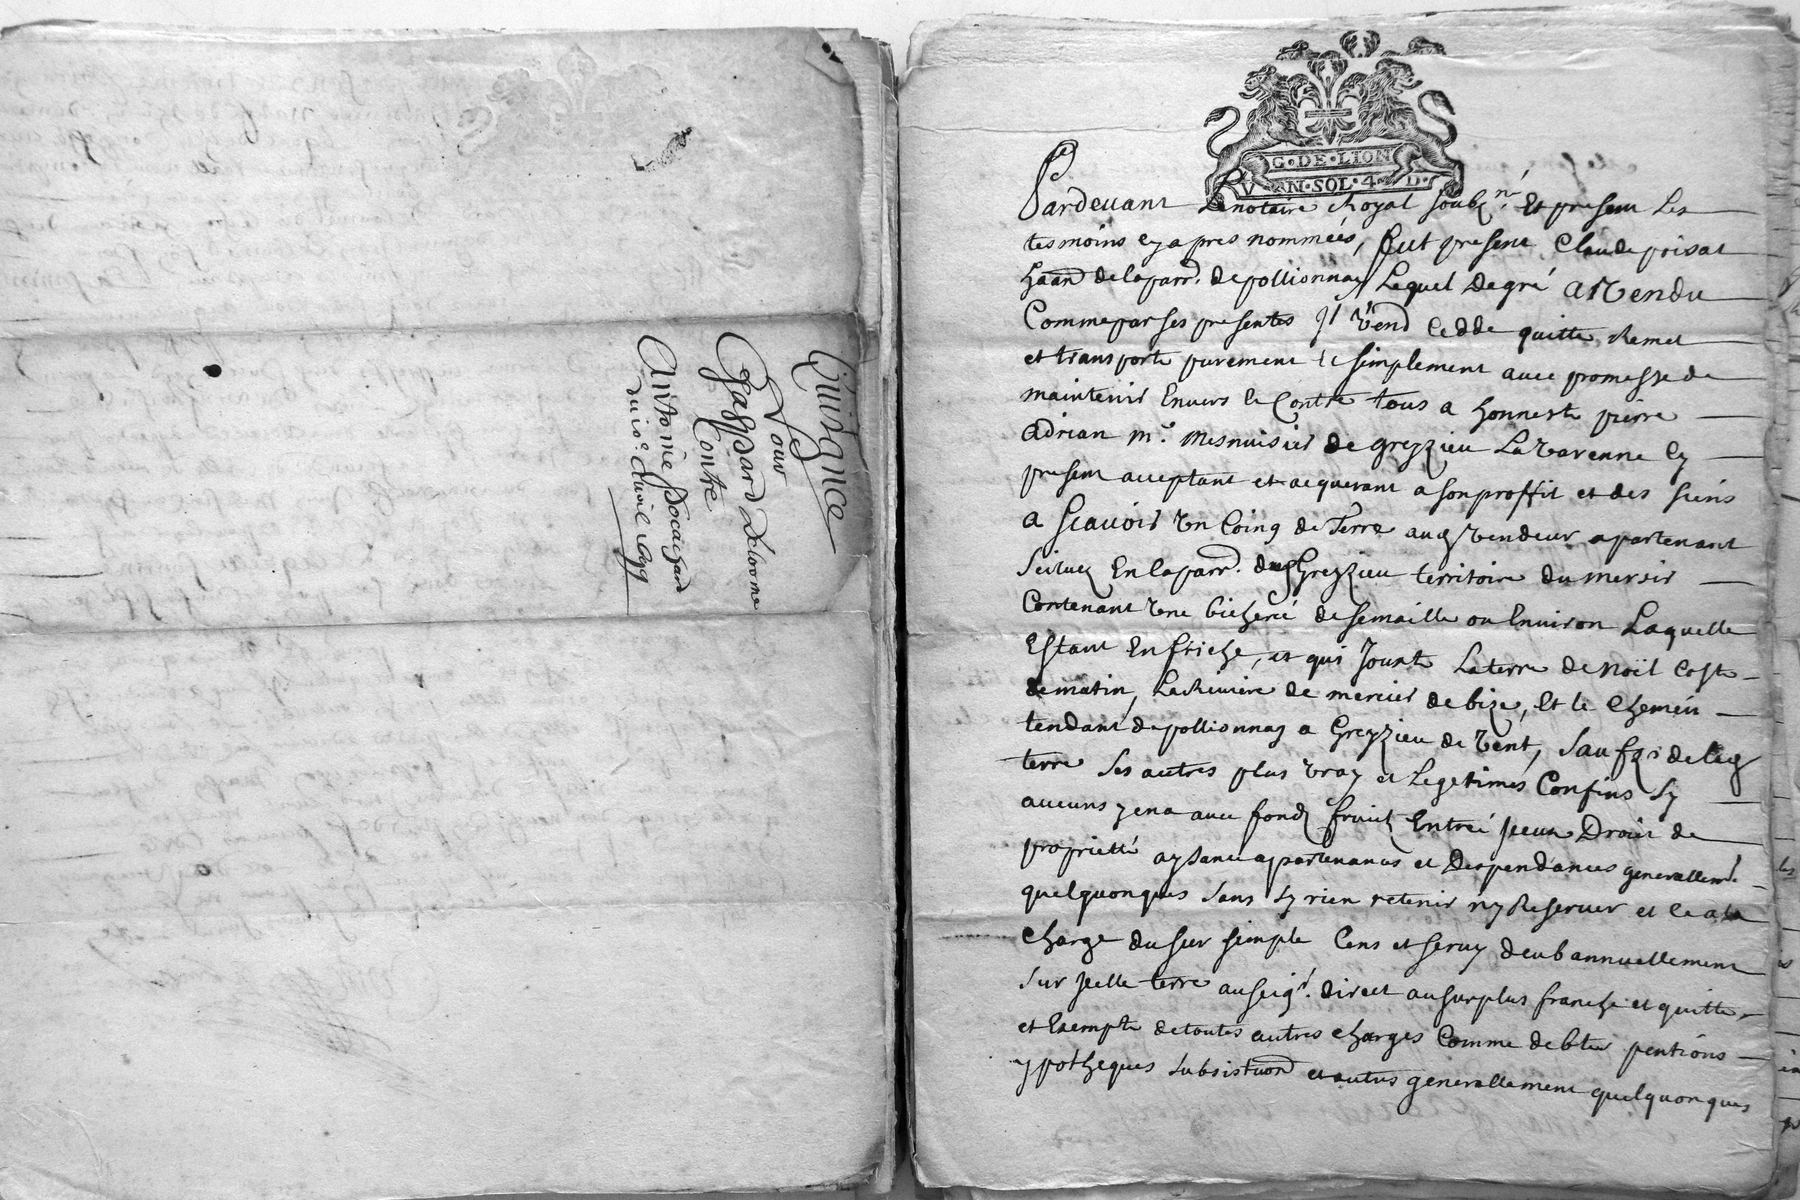 Quittance
Pour
Gaspard Delorme
Contre
Antoine
du 10e avril
G·DE·LION
VN·SOL·4·D·
Pardevant Le notaire Royal soubzné Et present Les
tesmoins cy apres nommées, fut present Claude poisat
haān de la parr. de pollionnay Lequel de gré a Vendu
Comme par ses presentes Jl Vend Cedde quitte Remet
et transporte purement et simplement avec promesse de
maintenir Envers et Contre tous a honneste pierre
Adrian me. menuisier de greyzieu La Varenne Cy
present acceptant et acquerant a son proffit et des siens
a scavoir Vn Coing de Terre aud Vendeur apartenant
scituez En la parr. dud Greyzieu territoire du mersier
Contenant Vne bicheré de semaille ou Environ Laquelle
Estant En friche, et qui Jouxte La terre de noël Coste
de matin, La Riviere de mercier de bize, Et le Chemin
tendant de pollionnay a Greyzieu de Vent, sauf de lad
terre ses autres plus Vray et Legetimes Confins sy
aucuns y en a avec fondz fruictz Entrée Jssue Droict de
proprietté aysance apartenances et Despendances generallemt.
quelquonques sans sy rien retenir ny Reserver et Ce a la
Charge du seur simple Cens et servy deub annuellement
sur Jcelle terre au seigr. direct au surplus franche et quitte
et Exempte de toutes autres charges Comme debtes pentions
ypotheques et autres generallement quelquonques